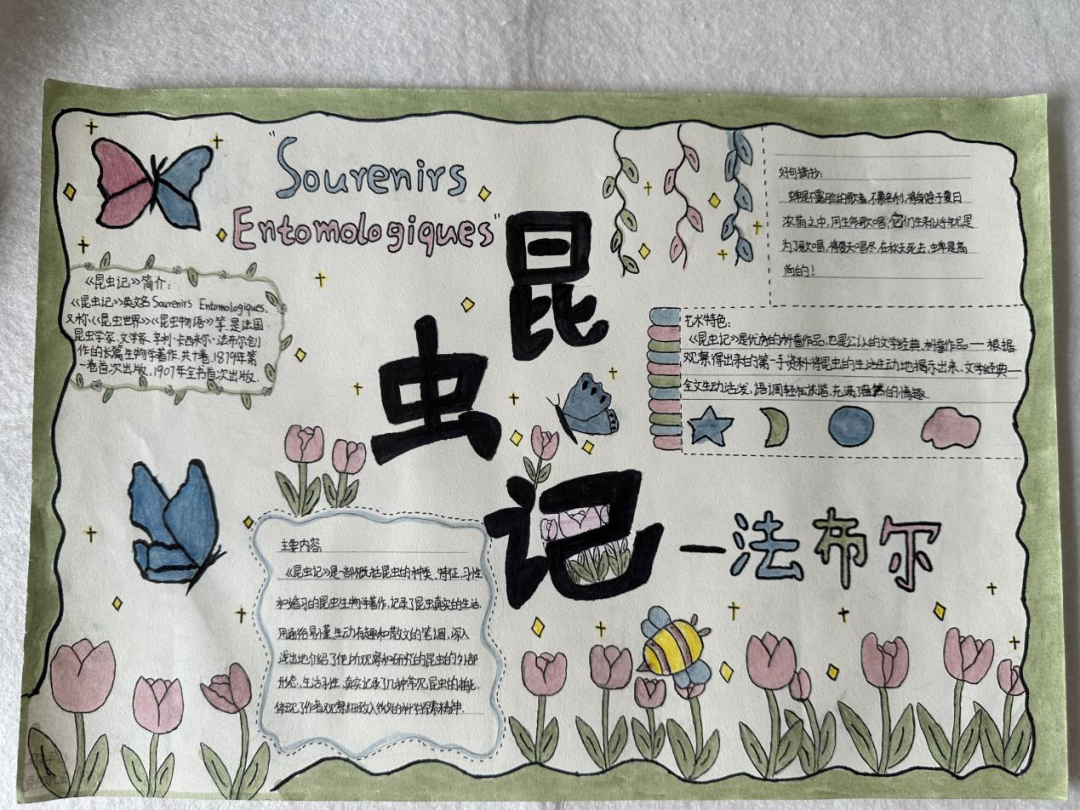 "Sourenirs
Entomologiques"
昆
虫
记
—法布尔
《昆虫记》简介:
《昆虫记》英文名Sourenirs Entomologiques,
又称《昆虫世界》《昆虫物语》等,是法国
昆虫学家、文学家,亨利·卡西米尔·法布尔创
作的长篇生物学著作,共十卷,1879年第
一卷首次出版,1907年全书首次出版.
好句摘抄:
蝉是不露脸的歌者,不慕名利,将身隐于夏日
浓荫之中,用生命歌唱,它们生来似乎就是
为了歌唱,将夏天唱尽,在秋天死去,蝉是高
尚的!
艺术特色:
《昆虫记》是优秀的科普作品,也是公认的文学经典,科普作品——根据
观察得出来的第一手资料将昆虫的生活生动地揭示出来,文学经典——
全文生动活发,语调轻松诙谐,充满了盎然的情趣.
主要内容:
《昆虫记》是一部概括昆虫的种类、特征、习性
和婚习的昆虫生物学著作,记录了昆虫真实的生活,
用通俗易懂、生动有趣和散文的笔调,深入
浅出地介绍了他所观察和研究的昆虫的外部
形态、生活习性,真实记录了几种常见昆虫的本能.
体现了作者观察细致入微的科学探索精神.